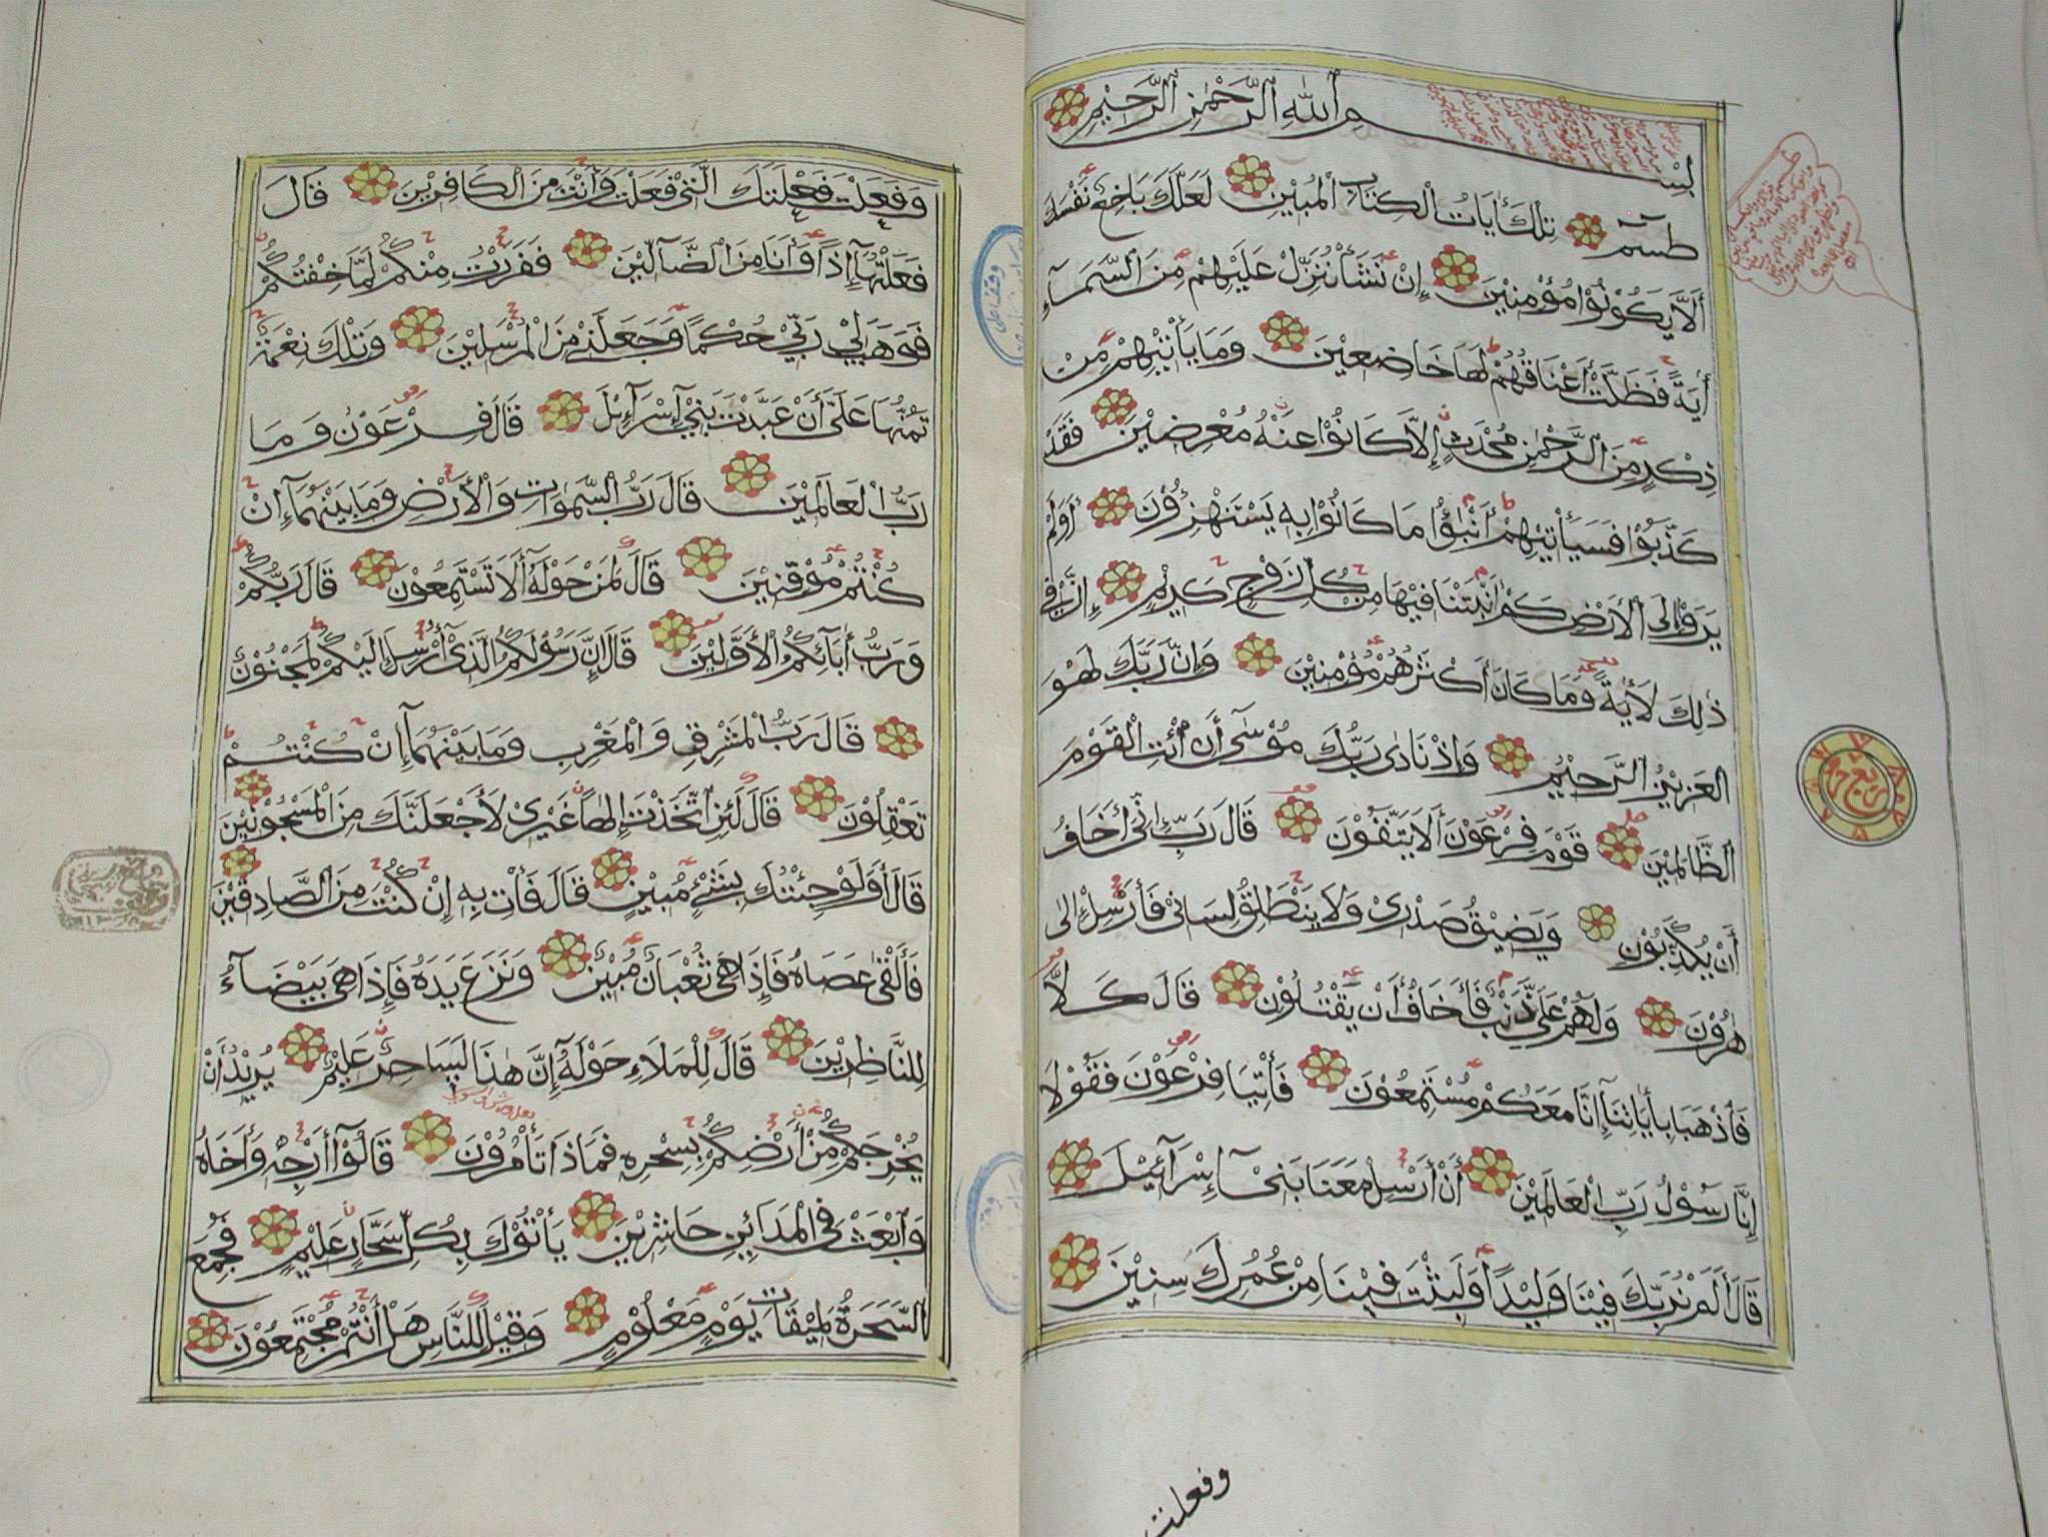 بِسْمِ ٱللَّهِ ٱلرَّحْمٰنِ ٱلرَّحِيْمِ
طسٓمٓ تِلْكَ أٰيَاتُ الْكِتَابِ الْمُبِيْنِ لَعَلَّكَ بَاخِعٌ نَفْسَكَ
أَلَّا يَكُوْنُوْا مُؤْمِنِيْنَ إِنْ نَشَأْ نُنَزِّلْ عَلَيْهِمْ مِنَ السَّمَآءِ
أٰيَةً فَظَلَّتْ أَعْنَاقُهُمْ لَهَا خَاضِعِيْنَ وَمَا يَأْتِيْهِمْ مِنْ
ذِكْرٍ مِنَ الرَّحْمٰنِ مُحْدَثٍ إِلَّا كَانُوْا عَنْهُ مُعْرِضِيْنَ فَقَدْ
كَذَّبُوْا فَسَيَأْتِيْهِمْ أَنْبٰؤُا مَا كَانُوْا بِهٖ يَسْتَهْزِءُوْنَ أَوَلَمْ
يَرَوْا إِلَى الْأَرْضِ كَمْ أَنْبَتْنَا فِيْهَا مِنْ كُلِّ زَوْجٍ كَرِيْمٍ إِنَّ فِيْ
ذٰلِكَ لَأٰيَةً وَمَا كَانَ أَكْثَرُهُمْ مُؤْمِنِيْنَ وَإِنَّ رَبَّكَ لَهُوَ
الْعَزِيْزُ الرَّحِيْمُ وَإِذْ نَادٰى رَبُّكَ مُوْسٰٓى أَنِ ائْتِ الْقَوْمَ
الظَّالِمِيْنَ قَوْمَ فِرْعَوْنَ أَلَا يَتَّقُوْنَ قَالَ رَبِّ إِنِّيْ أَخَافُ
أَنْ يُكَذِّبُوْنِ وَيَضِيْقُ صَدْرِيْ وَلَا يَنْطَلِقُ لِسَانِيْ فَأَرْسِلْ إِلٰى
هٰرُوْنَ وَلَهُمْ عَلَيَّ ذَنْبٌ فَأَخَافُ أَنْ يَقْتُلُوْنِ قَالَ كَلَّا
فَاذْهَبَا بِأٰيَاتِنَآ إِنَّا مَعَكُمْ مُسْتَمِعُوْنَ فَأْتِيَا فِرْعَوْنَ فَقُوْلَا
إِنَّا رَسُوْلُ رَبِّ الْعَالَمِيْنَ أَنْ أَرْسِلْ مَعَنَا بَنِيْٓ إِسْرَآئِيْلَ
قَالَ أَلَمْ نُرَبِّكَ فِيْنَا وَلِيْدًا وَلَبِثْتَ فِيْنَا مِنْ عُمُرِكَ سِنِيْنَ
وفعلت
وَفَعَلْتَ فَعْلَتَكَ الَّتِيْ فَعَلْتَ وَأَنْتَ مِنَ الْكَافِرِيْنَ قَالَ
فَعَلْتُهَآ إِذًا وَأَنَا مِنَ الضَّآلِّيْنَ فَفَرَرْتُ مِنْكُمْ لَمَّا خِفْتُكُمْ
فَوَهَبَ لِيْ رَبِّيْ حُكْمًا وَجَعَلَنِيْ مِنَ الْمُرْسَلِيْنَ وَتِلْكَ نِعْمَةٌ
تَمُنُّهَا عَلَيَّ أَنْ عَبَّدْتَ بَنِيْٓ إِسْرَآءِيْلَ قَالَ فِرْعَوْنُ وَمَا
رَبُّ الْعَالَمِيْنَ قَالَ رَبُّ السَّمٰوَاتِ وَالْأَرْضِ وَمَا بَيْنَهُمَآ إِنْ
كُنْتُمْ مُوْقِنِيْنَ قَالَ لِمَنْ حَوْلَهٗٓ أَلَا تَسْتَمِعُوْنَ قَالَ رَبُّكُمْ
وَرَبُّ أٰبَآئِكُمُ الْأَوَّلِيْنَ قَالَ إِنَّ رَسُوْلَكُمُ الَّذِيْٓ أُرْسِلَ إِلَيْكُمْ لَمَجْنُوْنٌ
قَالَ رَبُّ الْمَشْرِقِ وَالْمَغْرِبِ وَمَا بَيْنَهُمَآ إِنْ كُنْتُمْ
تَعْقِلُوْنَ قَالَ لَئِنِ اتَّخَذْتَ إِلٰهًا غَيْرِيْ لَأَجْعَلَنَّكَ مِنَ الْمَسْجُوْنِيْنَ
قَالَ أَوَلَوْ جِئْتُكَ بِشَيْءٍ مُبِيْنٍ قَالَ فَأْتِ بِهٖٓ إِنْ كُنْتَ مِنَ الصَّادِقِيْنَ
فَأَلْقٰى عَصَاهُ فَإِذَا هِيَ ثُعْبَانٌ مُبِيْنٌ وَنَزَعَ يَدَهٗ فَإِذَا هِيَ بَيْضَآءُ
لِلنَّاظِرِيْنَ قَالَ لِلْمَلَاءِ حَوْلَهٗٓ إِنَّ هٰذَا لَسَاحِرٌ عَلِيْمٌ يُرِيْدُ أَنْ
يُخْرِجَكُمْ مِنْ أَرْضِكُمْ بِسِحْرِهٖ فَمَاذَا تَأْمُرُوْنَ قَالُوْٓا أَرْجِهْ وَأَخَاهُ
وَابْعَثْ فِي الْمَدَآئِنِ حَاشِرِيْنَ يَأْتُوْكَ بِكُلِّ سَحَّارٍ عَلِيْمٍ فَجُمِعَ
السَّحَرَةُ لِمِيْقَاتِ يَوْمٍ مَعْلُوْمٍ وَقِيْلَ لِلنَّاسِ هَلْ أَنْتُمْ مُجْتَمِعُوْنَ